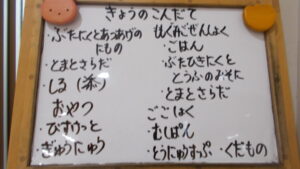 きょうのこんだて
・ぶたにくとあつあげの
たもの
・とまとさらだ
しる(添)
おやつ
・びすけっと
・ぎゅうにゅう
・ごはん
・ぶたひきにくと
とうふのみそに
・とまとさらだ
ごごしょく
・むしぱん
・とうにゅうすっぷ ・くだもの